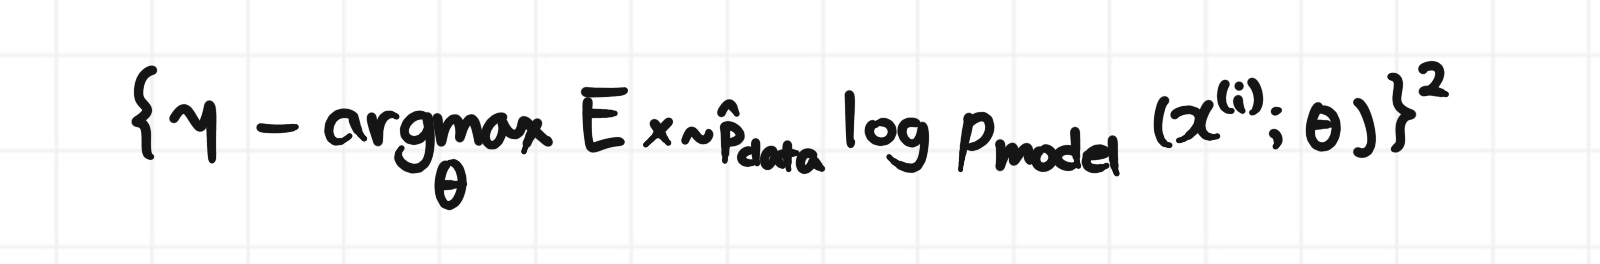 {y − argmax_θ E_{x∼p̂_data} log p_model (x^{(i)}; θ)}²